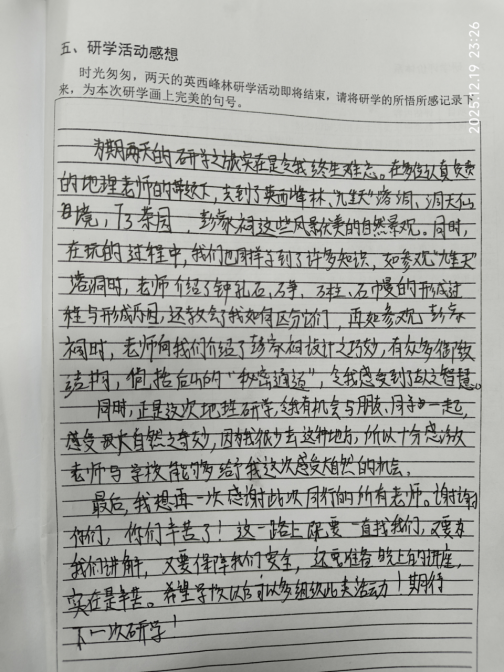 五、研学活动感想
时光匆匆，两天的英西峰林研学活动即将结束，请将研学的所悟所感记录下
来，为本次研学画上完美的句号。
为期两天的研学之旅实在是令我终生难忘。在多位认真负责
的地理老师的带领下，去到了英西峰林、"九重天"溶洞、洞天仙
境，茶园，彭家祠这些风景优美的自然景观。同时，
在玩的过程中，我们也同样学到了许多知识，如参观"九重天"
溶洞时，老师介绍了钟乳石、石笋、石柱、石幔的形成过
程与形成原因，还教会了我如何区分它们，再如参观彭家
祠时，老师向我们介绍了彭家祠设计之巧妙，有众多
结构，包括后山的"秘密通道"，令我感受到古人之智慧。
同时，正是这次地理研学，令我有机会与朋友、同学一起，
感受大自然之奇妙，因为我很少去这种地方，所以十分感激
老师与学校能够给我这次感受大自然的机会。
最后，我想再一次感谢此次同行的所有老师。谢谢
你们，你们辛苦了！这一路上既要一直找我们，又要为
我们讲解，又要保障我们安全，还要准备晚上的讲座，
实在是辛苦。希望学校以后可以多组织此类活动！期待
下一次研学！
2025.12.19 23:26